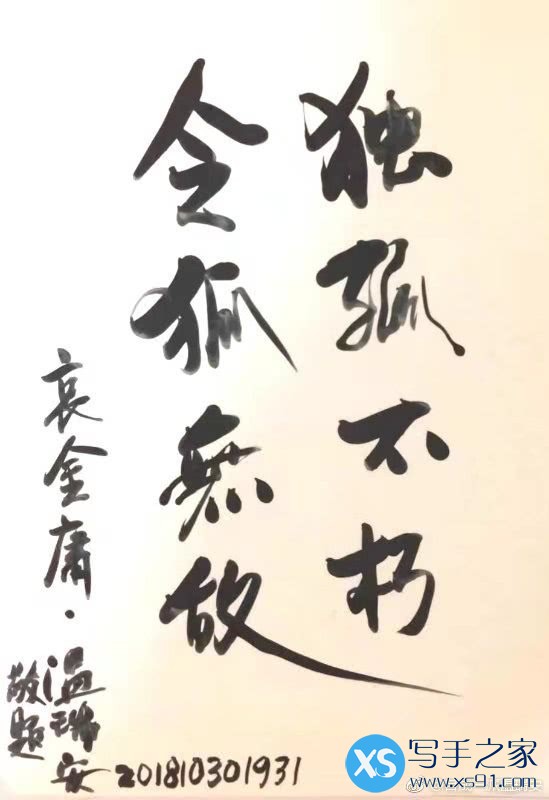 独孤不朽
令狐無敌
哀金庸·温瑞安
敬题
201810301931
XS
写手之家
www.xs91.com